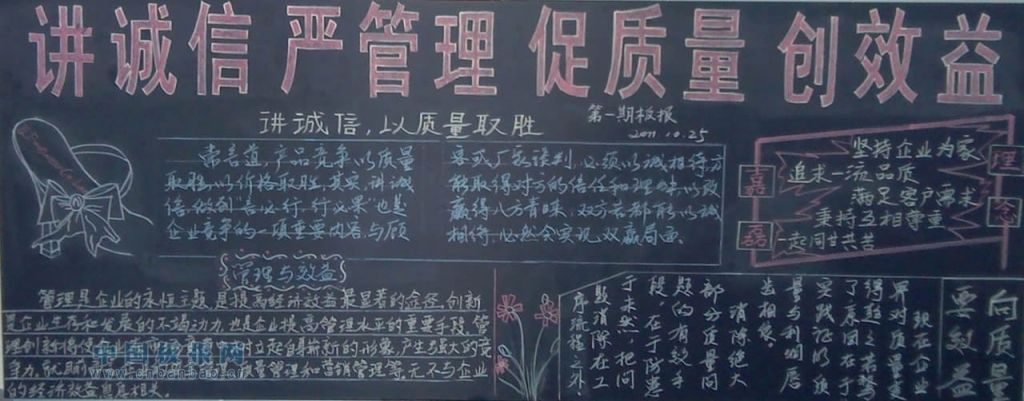 讲诚信 严管理 促质量 创效益
讲诚信,以质量取胜
第一期板报
2011.10.25
常言道,产品竞争以质量
取胜,以价格取胜,其实,讲诚
信,做到言必行,行必果"也是
企业竞争的一项重要内容,与顾
客或厂家谈判,必须以诚相待方
能取得对方的信任和理
赢得八方青睐,双方若都能以诚
相待,必然会实现双赢局面。
嘉磊
坚持企业为家
追求一流品质
满足客户需求
秉持互相尊重
一起同甘共苦
理念
管理与效益
管理是企业的永恒主题,是提高经济效益最显著的途径,创新
是企业生存和发展的不竭动力,也是企业提高管理水平的重要手段,管
理创新将使企业
起自身崭新的形象,产生强大的竞
争力,
管理和营销管理等,无不与企业
的经济效益息息相关。
中国板报网
www.cnbanbao.cn
向质量
要效益
现在企业
界对质量
实践证明
量与利润
消除绝大
部分质量问
题的有效手
段,在于防患
于未然,把问
题消除在工
序流程之外。